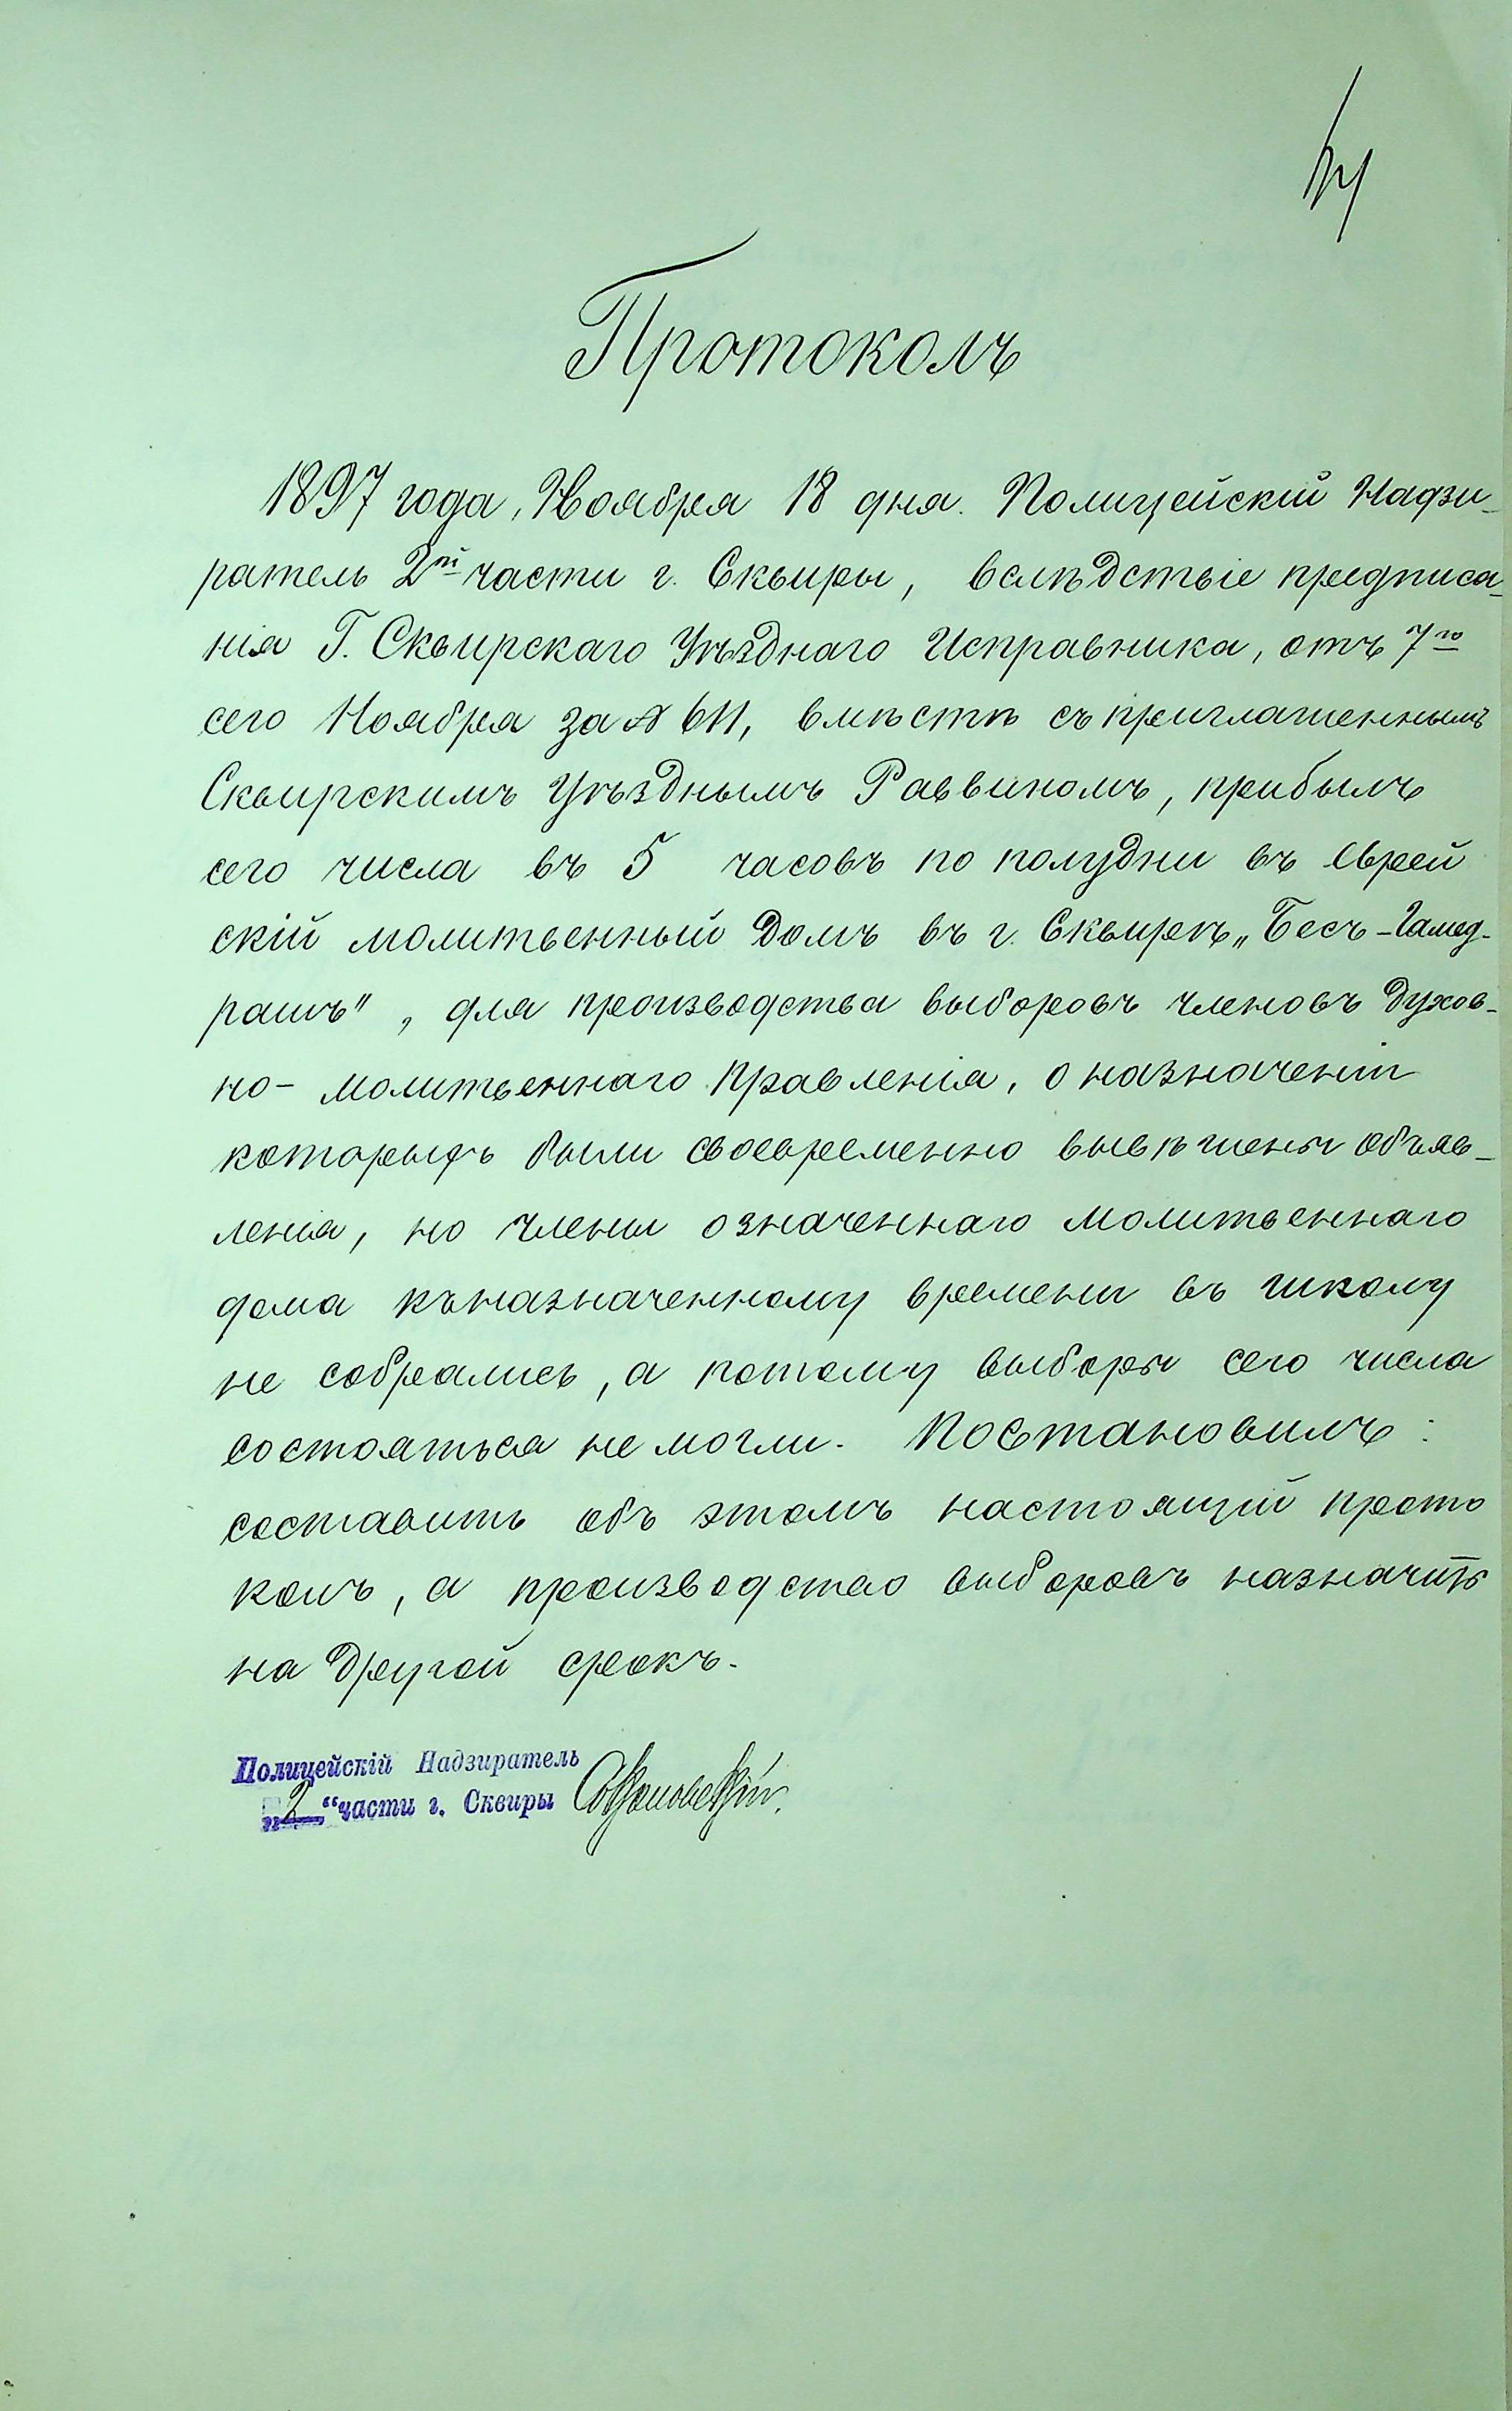 Протоколъ
1897 года, Ноября 18 дня. Полицейскій Надзи-
ратель 2й части г. Сквиры, вслѣдствіе предписа-
нія Г. Сквирскаго Уѣзднаго Исправника, отъ 7го
сего Ноября за № 611, вмѣстѣ съ приглашеннымъ
Сквирскимъ Уѣзднымъ Раввиномъ, прибылъ
сего числа въ 5 часовъ по полудни въ еврей
скій молитвенный домъ въ г. Сквирѣ „Бесъ-Гамед-
рашъ", для производства выборовъ членовъ Духов-
но- молитвеннаго Правленія, о назначеніи
которыхъ были своевременно вывѣшены объяв-
ленія, но члены означеннаго молитвеннаго
дома къ назначенному времени въ школу
не собрались, а потому выборы сего числа
состояться не могли. Постановилъ:
составить объ этомъ настоящій прото
колъ, а производство выборовъ назначить
на другой срокъ.
Полицейскій Надзиратель
„2“ части г. Сквиры